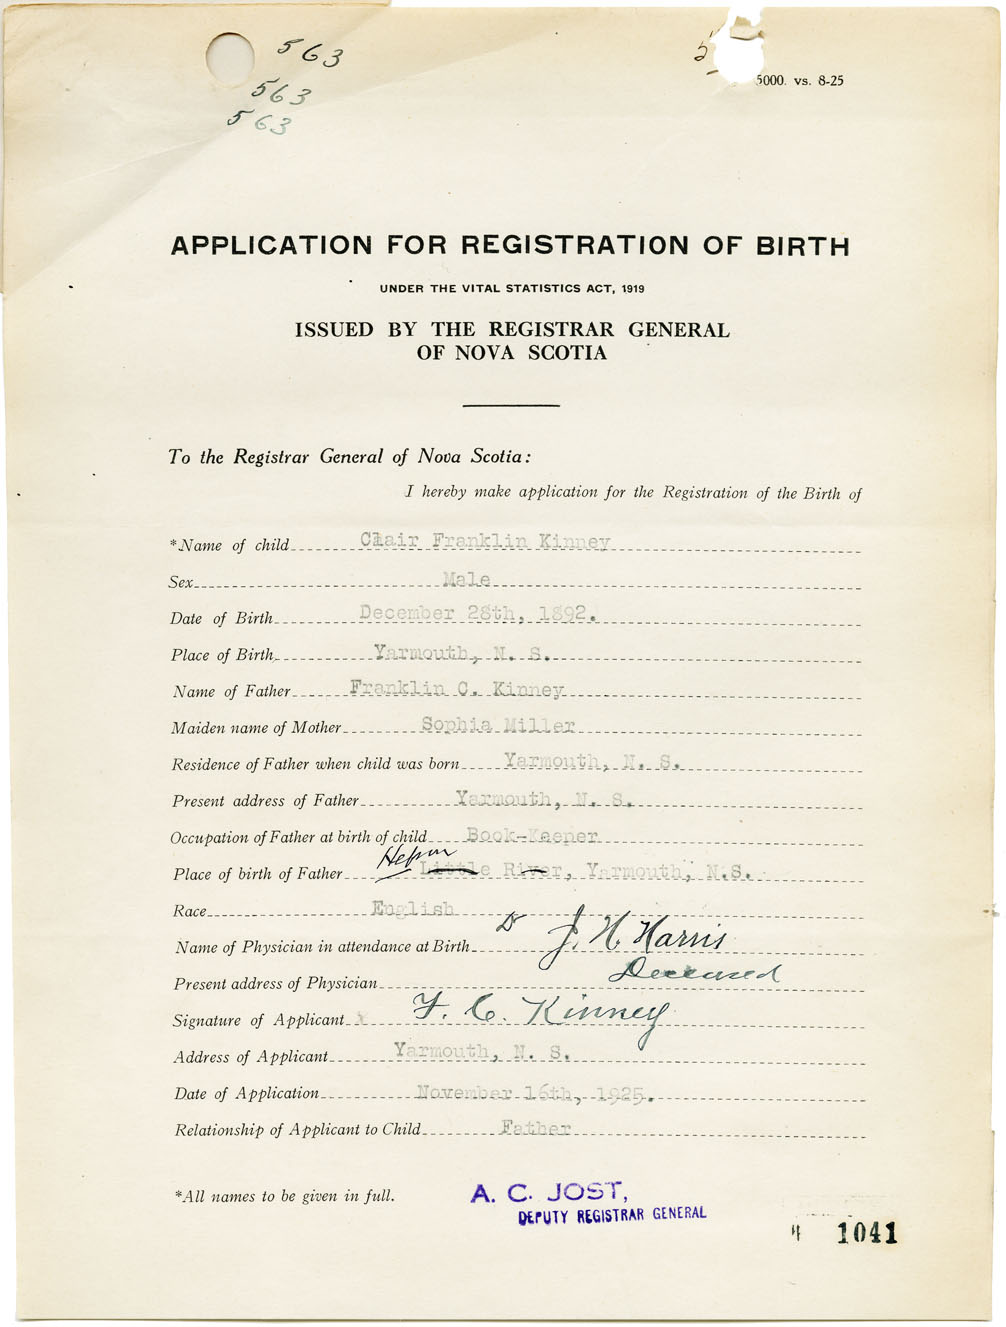 563
5
5000. vs. 8-25
563
563
APPLICATION FOR REGISTRATION OF BIRTH
UNDER THE VITAL STATISTICS ACT, 1919
ISSUED BY THE REGISTRAR GENERAL
OF NOVA SCOTIA
To the Registrar General of Nova Scotia:
I hereby make application for the Registration of the Birth of
*Name of child Clair Franklin Kinney
Sex Male
Date of Birth December 28th, 1892.
Place of Birth, Yarmouth, N. S.
Name of Father Franklin C. Kinney
Maiden name of Mother Sophia Miller
Residence of Father when child was born Yarmouth, N. S.
Present address of Father Yarmouth, N. S.
Occupation of Father at birth of child Book-Keeper
Hebron
Place of birth of Father Little River, Yarmouth, N.S.
Race English
Name of Physician in attendance at Birth Dr J. H. Harris
Present address of Physician Deceased
Signature of Applicant F. C. Kinney
Address of Applicant Yarmouth, N. S.
Date of Application November 16th, 1925.
Relationship of Applicant to Child Father
*All names to be given in full.
A. C. JOST,
DEPUTY REGISTRAR GENERAL
1041